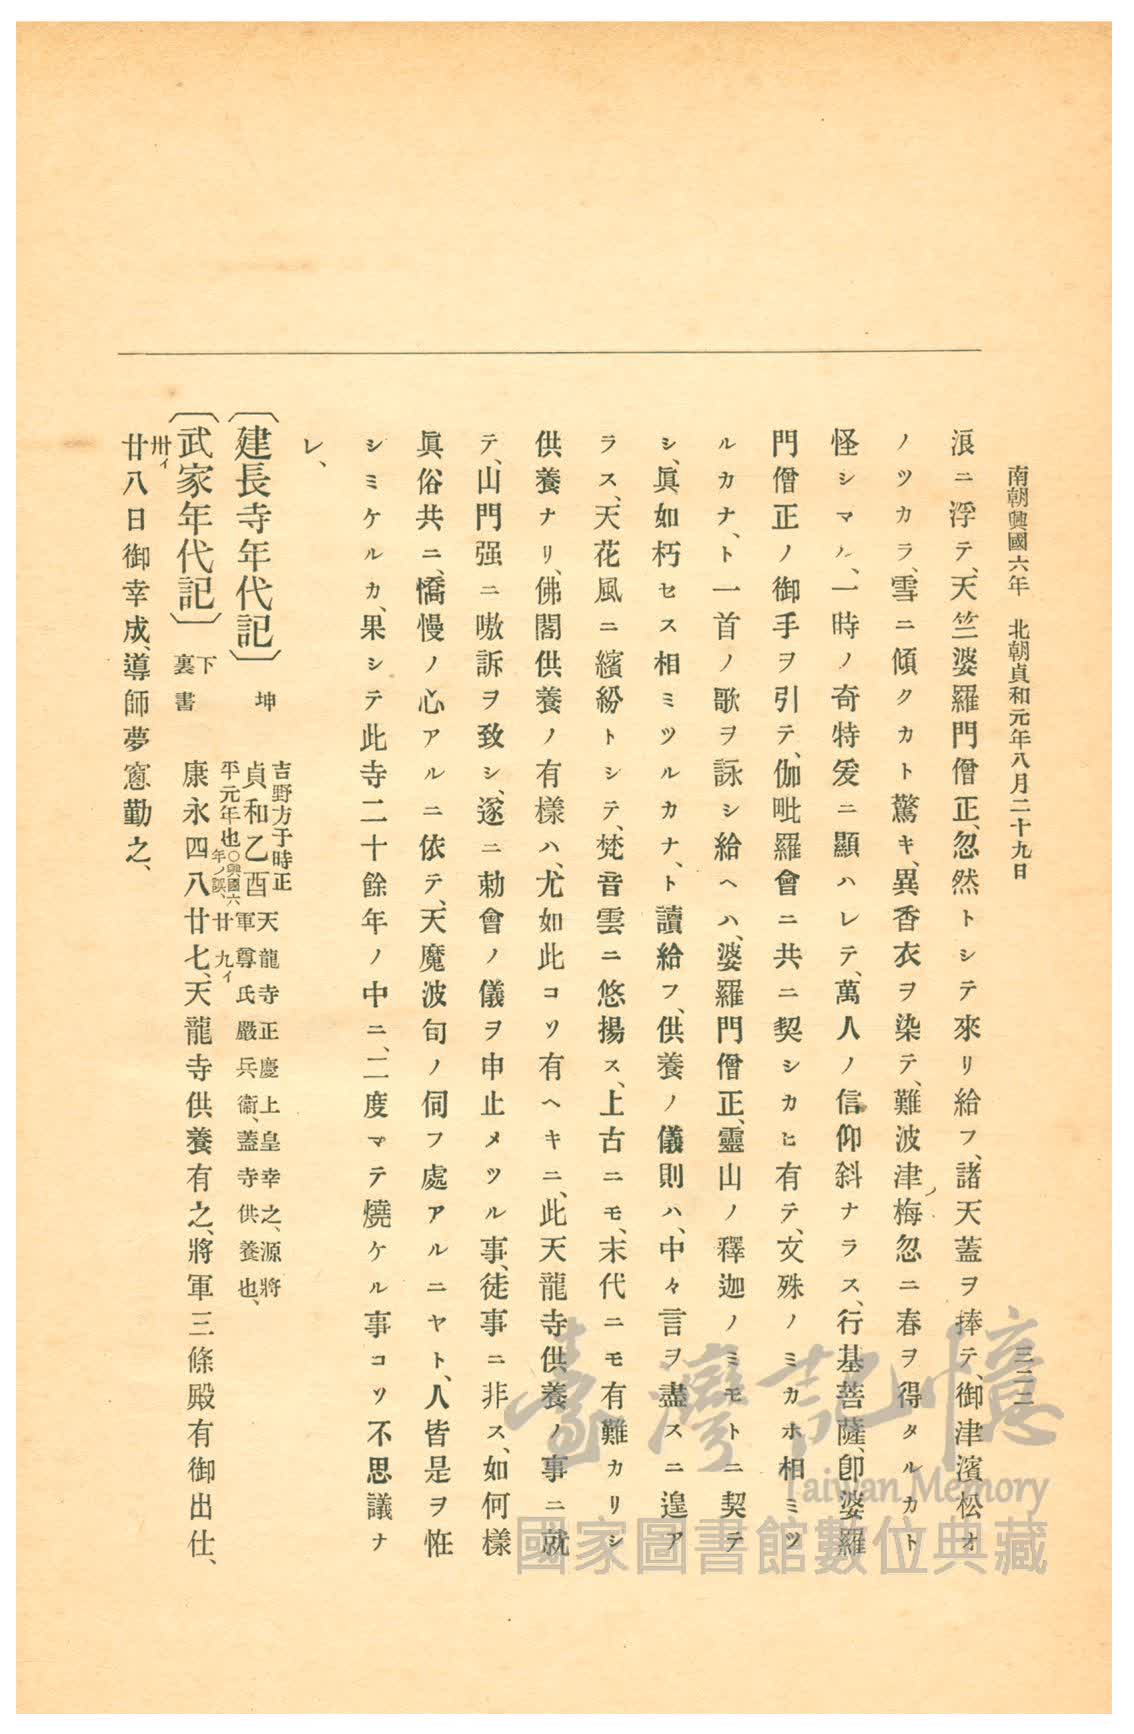 南朝興國六年　北朝貞和元年八月二十九日　三二二
浪ニ浮テ、天竺婆羅門僧正、忽然トシテ來リ給フ、諸天蓋ヲ捧テ、御津濱松オ
ノツカラ、雪ニ傾クカト驚キ、異香衣ヲ染テ、難波津ノ梅忽ニ春ヲ得タルカト
怪シマル、一時ノ奇特爰ニ顯ハレテ、萬人ノ信仰斜ナラス、行基菩薩、卽婆羅
門僧正ノ御手ヲ引テ、伽毗羅會ニ共ニ契シカヒ有テ、文殊ノミカホ相ミツ
ルカナ、ト一首ノ歌ヲ詠シ給ヘハ、婆羅門僧正、靈山ノ釋迦ノミモトニ契テ
シ、眞如朽セス相ミツルカナ、ト讀給フ、供養ノ儀則ハ、中々言ヲ盡スニ遑ア
ラス、天花風ニ繽紛トシテ、梵音雲ニ悠揚ス、上古ニモ、末代ニモ有難カリシ
供養ナリ、佛閣供養ノ有樣ハ、尤如此コソ有ヘキニ、此天龍寺供養ノ事ニ就
テ、山門强ニ嗷訴ヲ致シ、遂ニ勅會ノ儀ヲ申止メツル事、徒事ニ非ス、如何樣
眞俗共ニ、憍慢ノ心アルニ依テ、天魔波旬ノ伺フ處アルニヤト、人皆是ヲ恠
シミケルカ、果シテ此寺二十餘年ノ中ニ、二度マテ燒ケル事コソ不思議ナ
レ、
〔建長寺年代記〕坤　吉野方于時正平元年也○興國六年ノ誤、貞和乙酉　天龍寺正慶上皇幸之、源將軍尊氏嚴兵衞、蓋寺供養也、
〔武家年代記〕下裏書　康永四八廿七廿九ィ、天龍寺供養有之、將軍三條殿有御出仕、
廿卅ィ八日御幸成、導師夢窓勤之、
臺灣記憶
Taiwan Memory
國家圖書館數位典藏